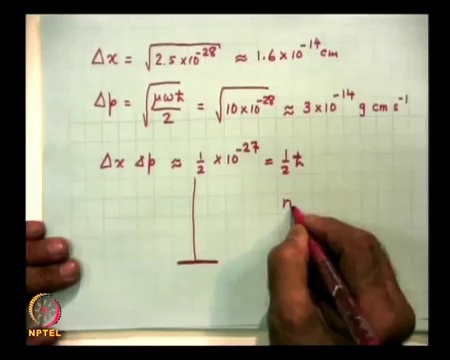 Δx = √2.5×10⁻²⁸ ≈ 1.6×10⁻¹⁴ cm
Δp = √μωħ/2 = √10×10⁻²⁸ ≈ 3×10⁻¹⁴ g cm s⁻¹
Δx Δp ≈ 1/2 ×10⁻²⁷ = 1/2 ħ
n
NPTEL